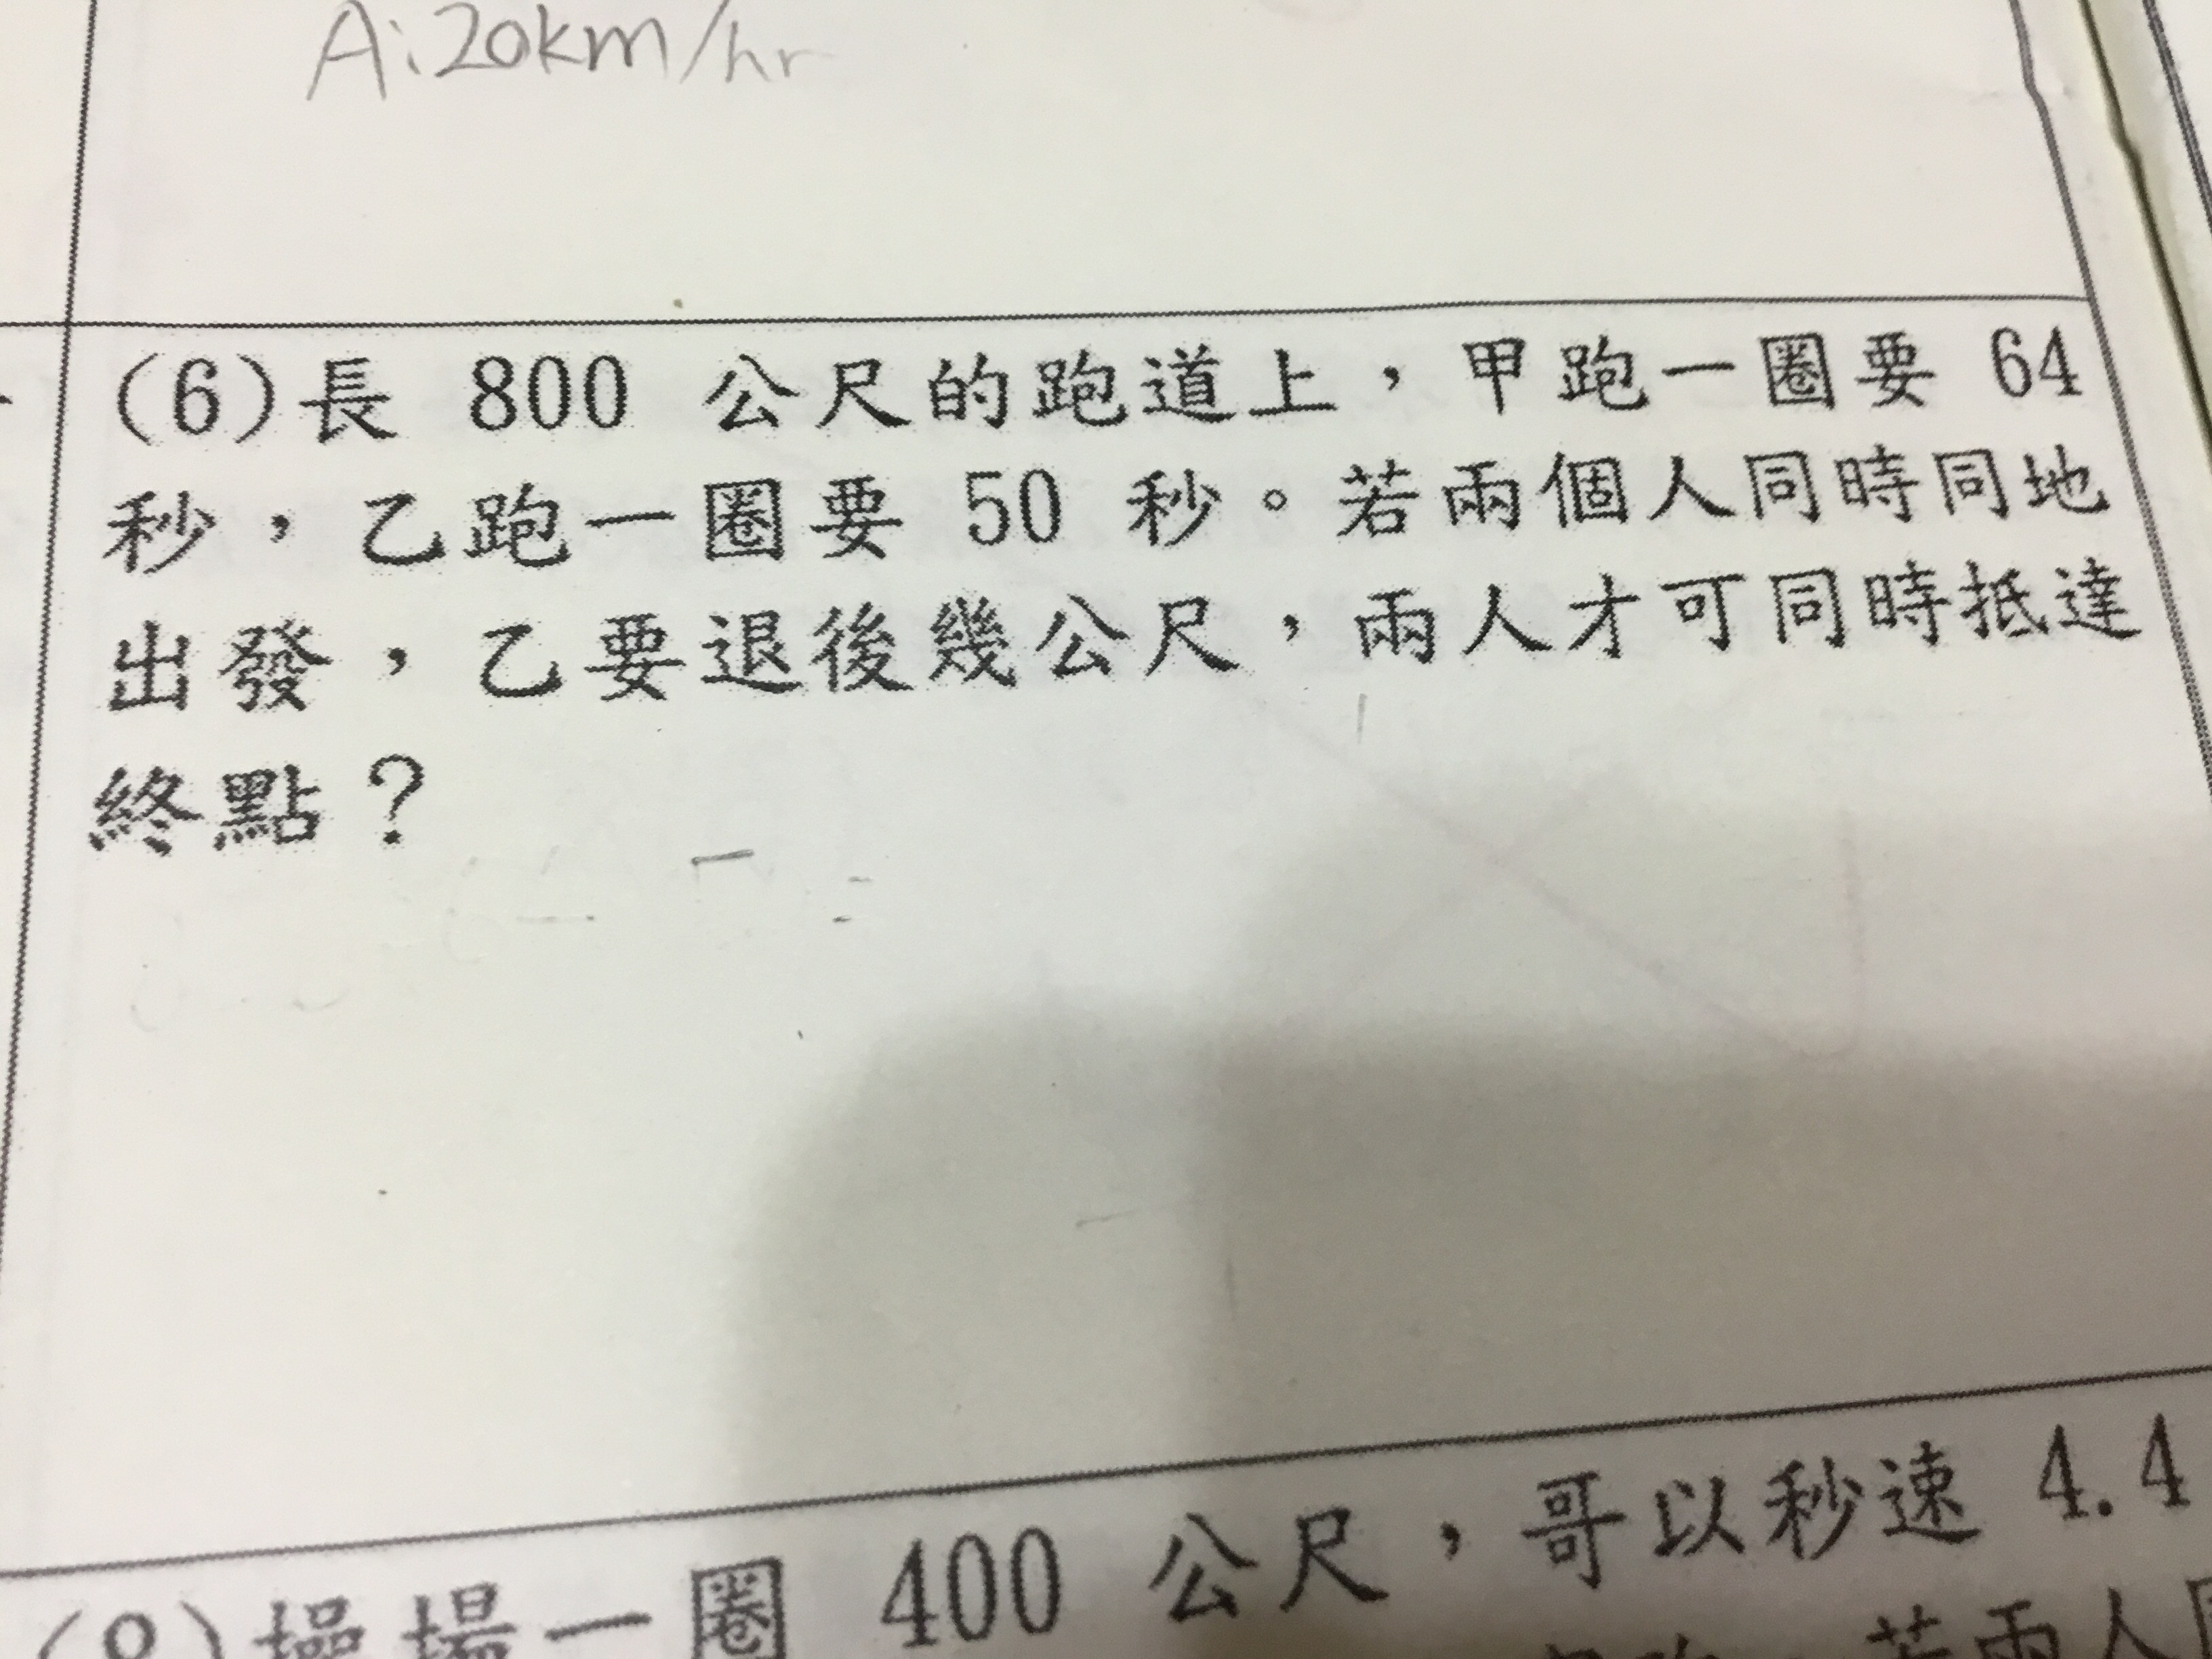 A:20km/hr
(6)長 800 公尺的跑道上，甲跑一圈要 64
秒，乙跑一圈要 50 秒。若兩個人同時同地
出發，乙要退後幾公尺，兩人才可同時抵達
終點？
(8)操場一圈 400 公尺，哥以秒速 4.4
若兩人